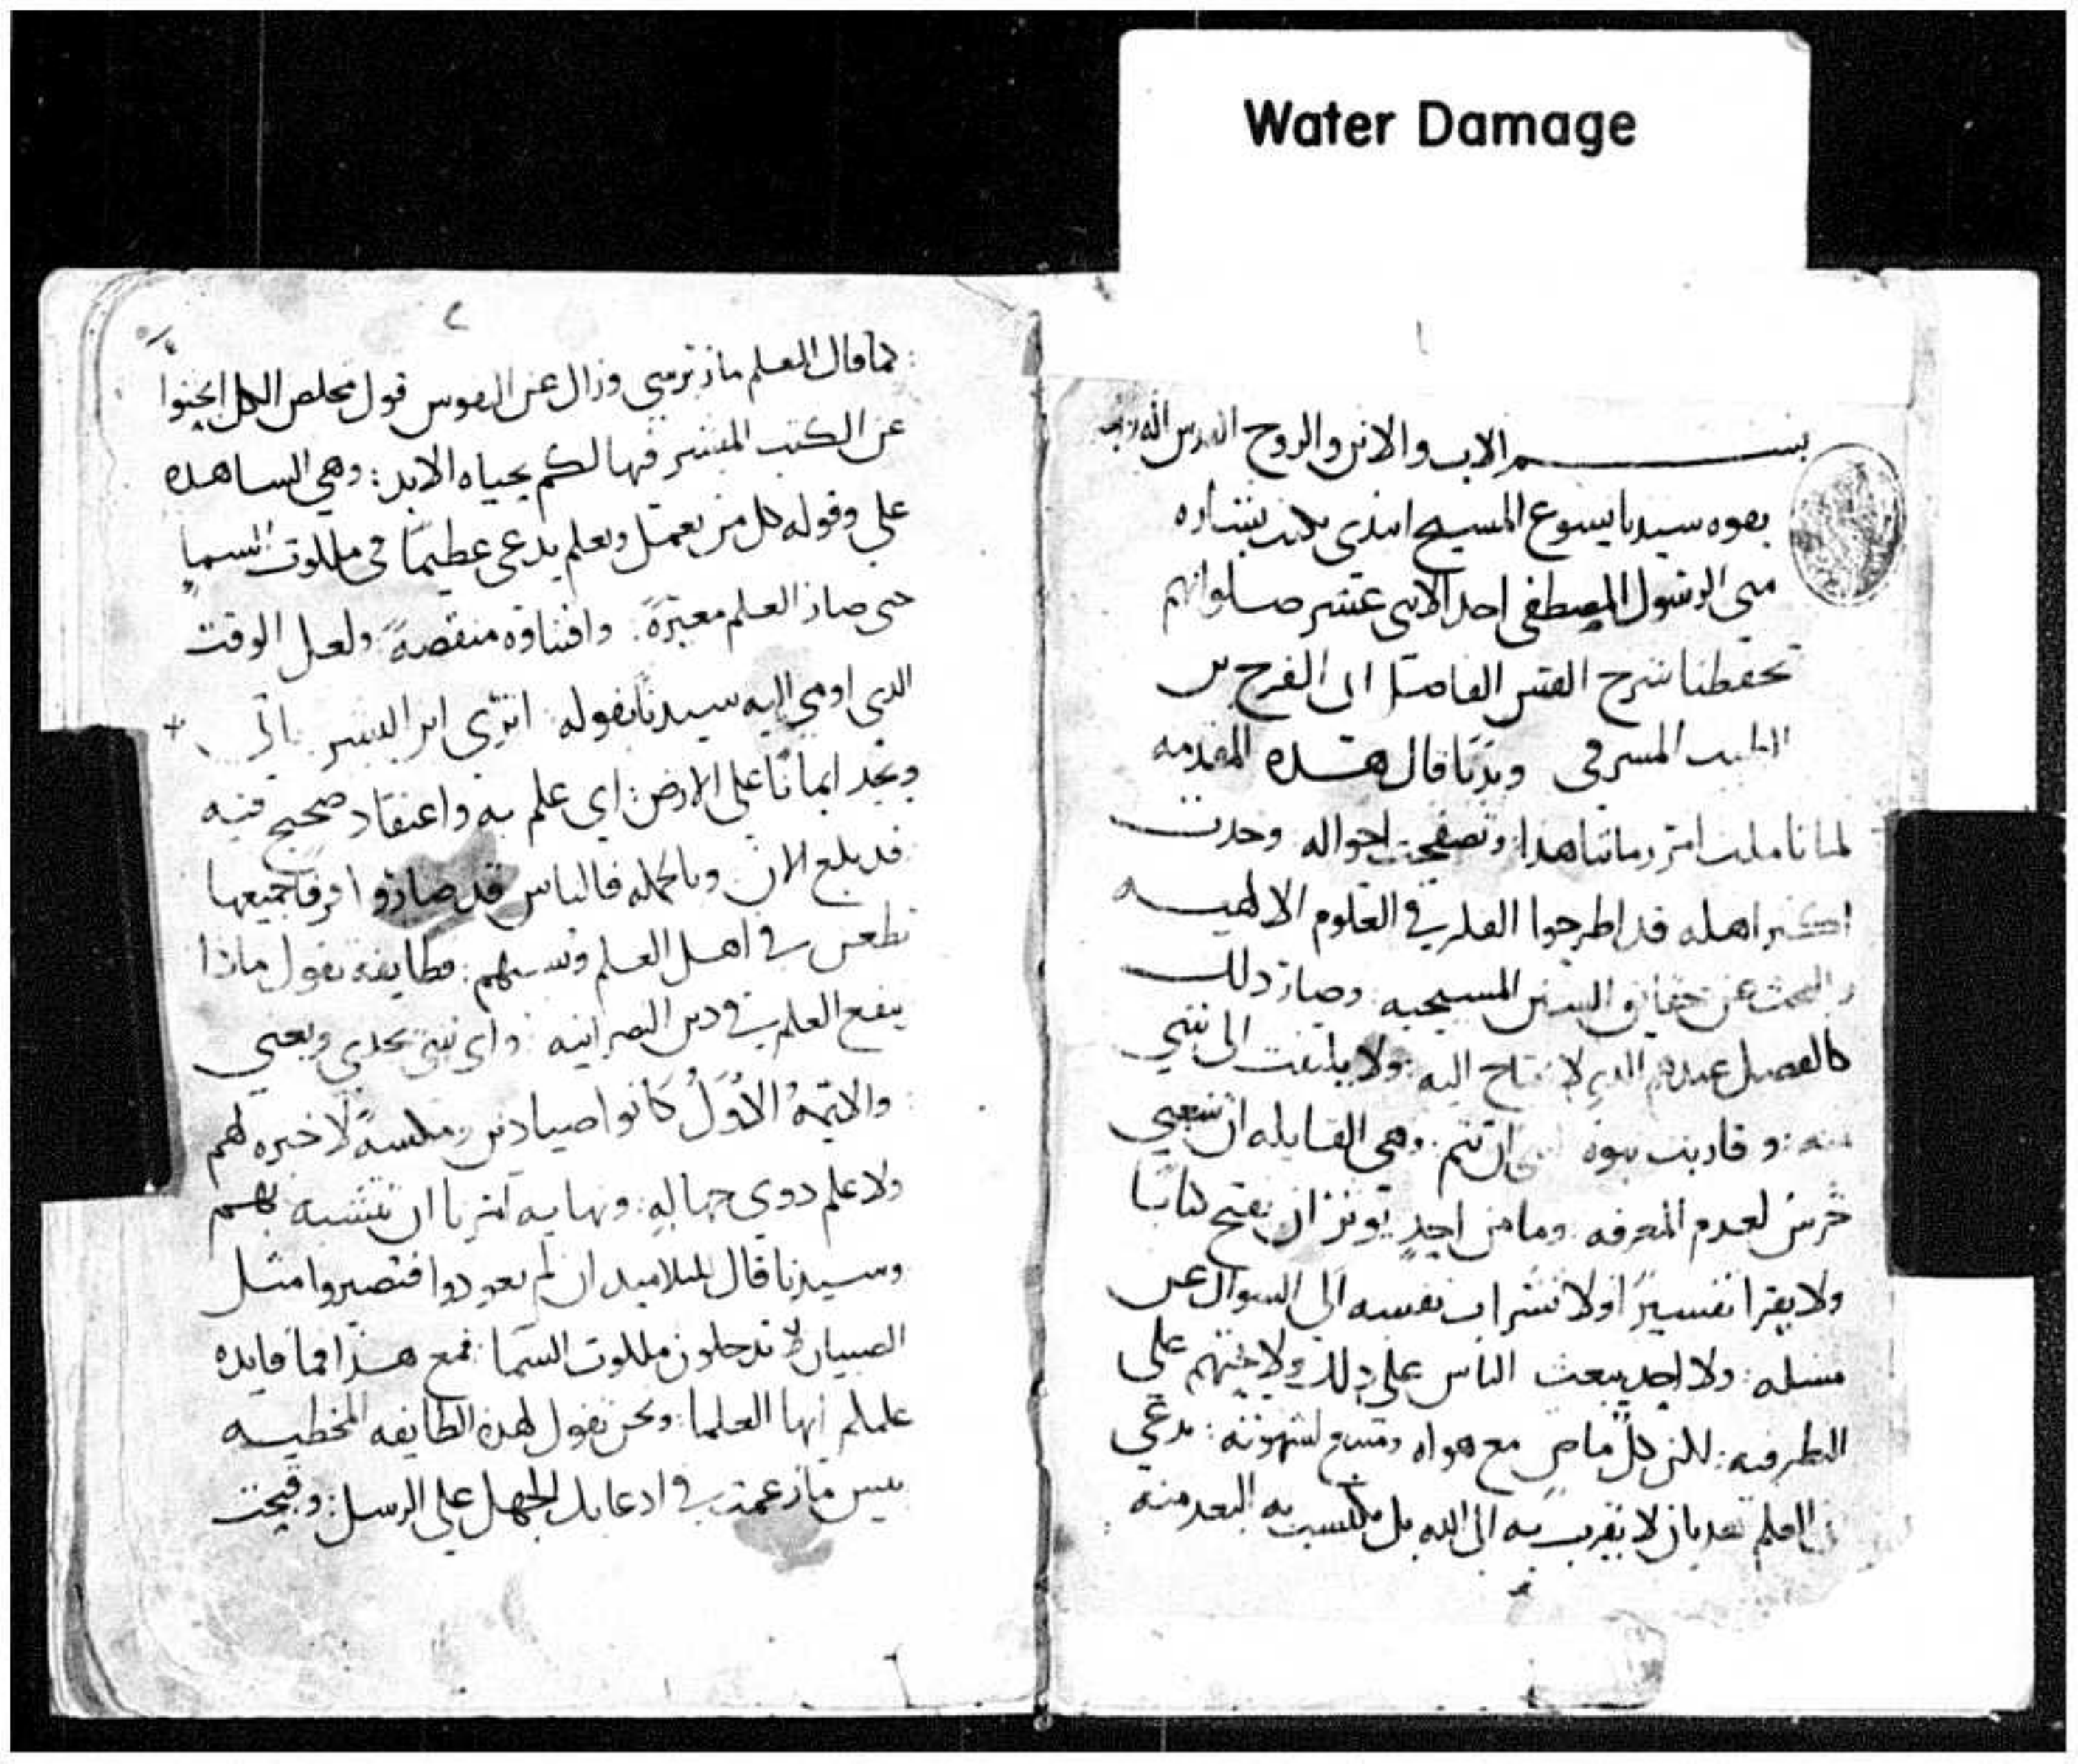 Water Damage
١
بسم الاب والابن والروح القدس اله واحد
بقوه سيدنا يسوع المسيح ابتدى بكتب بشاره
متى الرسول المصطفى احد الاثنى عشر صلواتهم
تحفظنا شرح القس الفاضل ابى الفرج بن
الطيب المشرقى وبدتا قال هذه المقدمه
لما تاملت امر زماننا هذا وتصفحت احواله وجدت
اكثر اهله قد اطرحوا الفكر في العلوم الالهيه
والبحث عن حقايق السنن المسيحيه وصار ذلك
كالفصل عندهم الذي لا يحتاج اليه ولا يلتفت الى شي
منه وقاربت نبوه ان تتم وهي القايله ان شعبي
خرس لعدم المعرفه وما من احدٍ يوثر ان يفتح كتابًا
ولا يقرا تفسيرًا ولا تشراب نفسه الى السوال عن
مسله ولا احد يبعث الناس على ذلك ولا يحثهم على
النظر فيه لكن كلٌ ماضٍ مع هواه ومتبع لشهوته مدعي
ان العلم لا يقرب به الى الله بل يكتسب به البعد منه
٢
كما قال المعلم مار ترسي وزال عن النفوس قول مخلص الكل ابحثوا
عن الكتب المبشر فيها لكم بحياه الابد وهي الساهده
علي وقوله كل من يعمل ويعلم يدعى عظيمًا في ملكوت السما
حتى صار العلم معيرةً واقتناوه منقصةً ولعل الوقت
الذي اومي اليه سيدنا بقوله اترى ابن البشر ياتى
ويجد ايمانًا على الارض اي علم به واعتقاد صحيح فيه
قد بلغ الان وبالجمله فالناس قد صاروا فرقا جميعها
تطعن في اهل العلم وتسبهم فطايفه تقول ماذا
ينفع العلم في دين النصرانيه واي شي يجدي ويغني
والايمة الاوَلُ كانوا صيادين ومكسةً لا خبره لهم
ولا علم دوي جهاله ونهايه امرنا ان نتشبه بهم
وسيدنا قال للتلاميد ان لم تعودوا فتصيروا مثل
الصبيان لا تدخلون ملكوت السما فمع هذا فما فايده
علمكم ايها العلما ونحن نقول لهذه الطايفه المخطيه
بيس ما زعمت في ادعايك الجهل على الرسل وقبحت